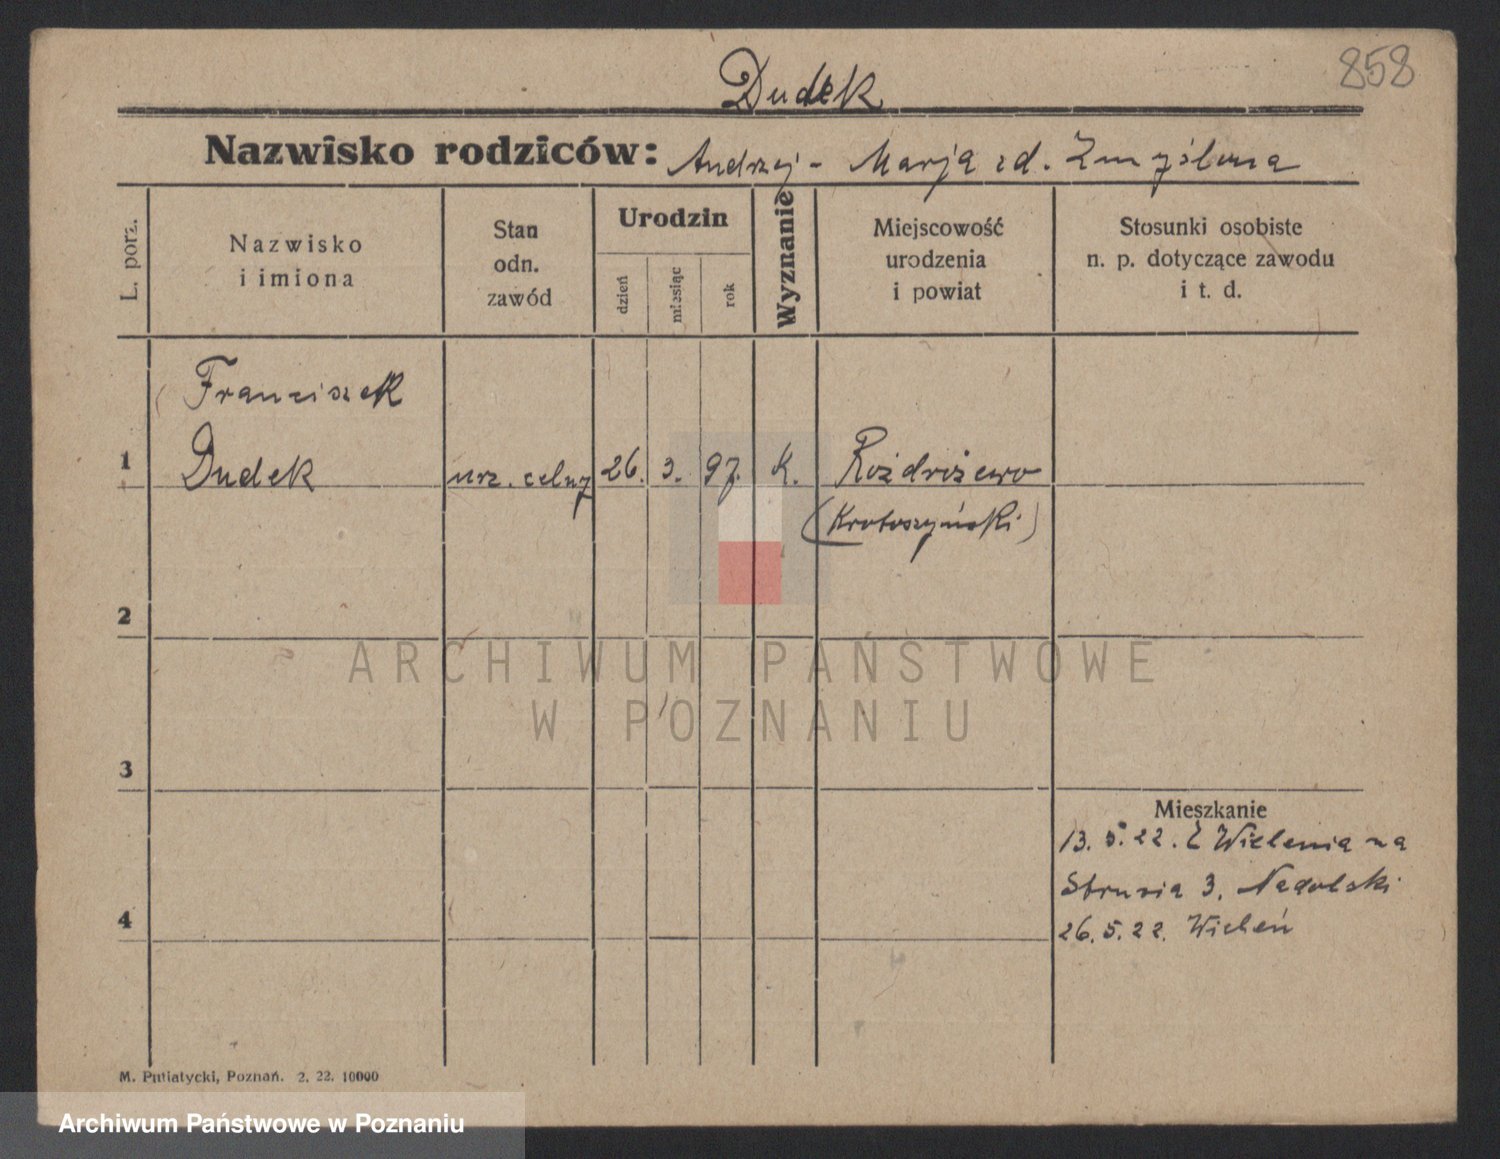 858
Dudek
Nazwisko rodziców: Andrzej - Marja zd. Zmyślona
L. porz.
Nazwisko
i imiona
Stan
odn.
zawód
Urodzin
dzień
miesiąc
rok
Wyznanie
Miejscowość
urodzenia
i powiat
Stosunki osobiste
n. p. dotyczące zawodu
i t. d.
Franciszek
1 Dudek urz. celny 26. 3. 97. K. Rozdrożewo
(Krotoszyński)
2
ARCHIWUM PAŃSTWOWE
W POZNANIU
3
Mieszkanie
13. 5. 22. Z Wielenia na
Strusia 3. Nadolski
4
26. 5. 22. Wieleń
M. Putiatycki, Poznań. 2. 22. 10000
Archiwum Państwowe w Poznaniu